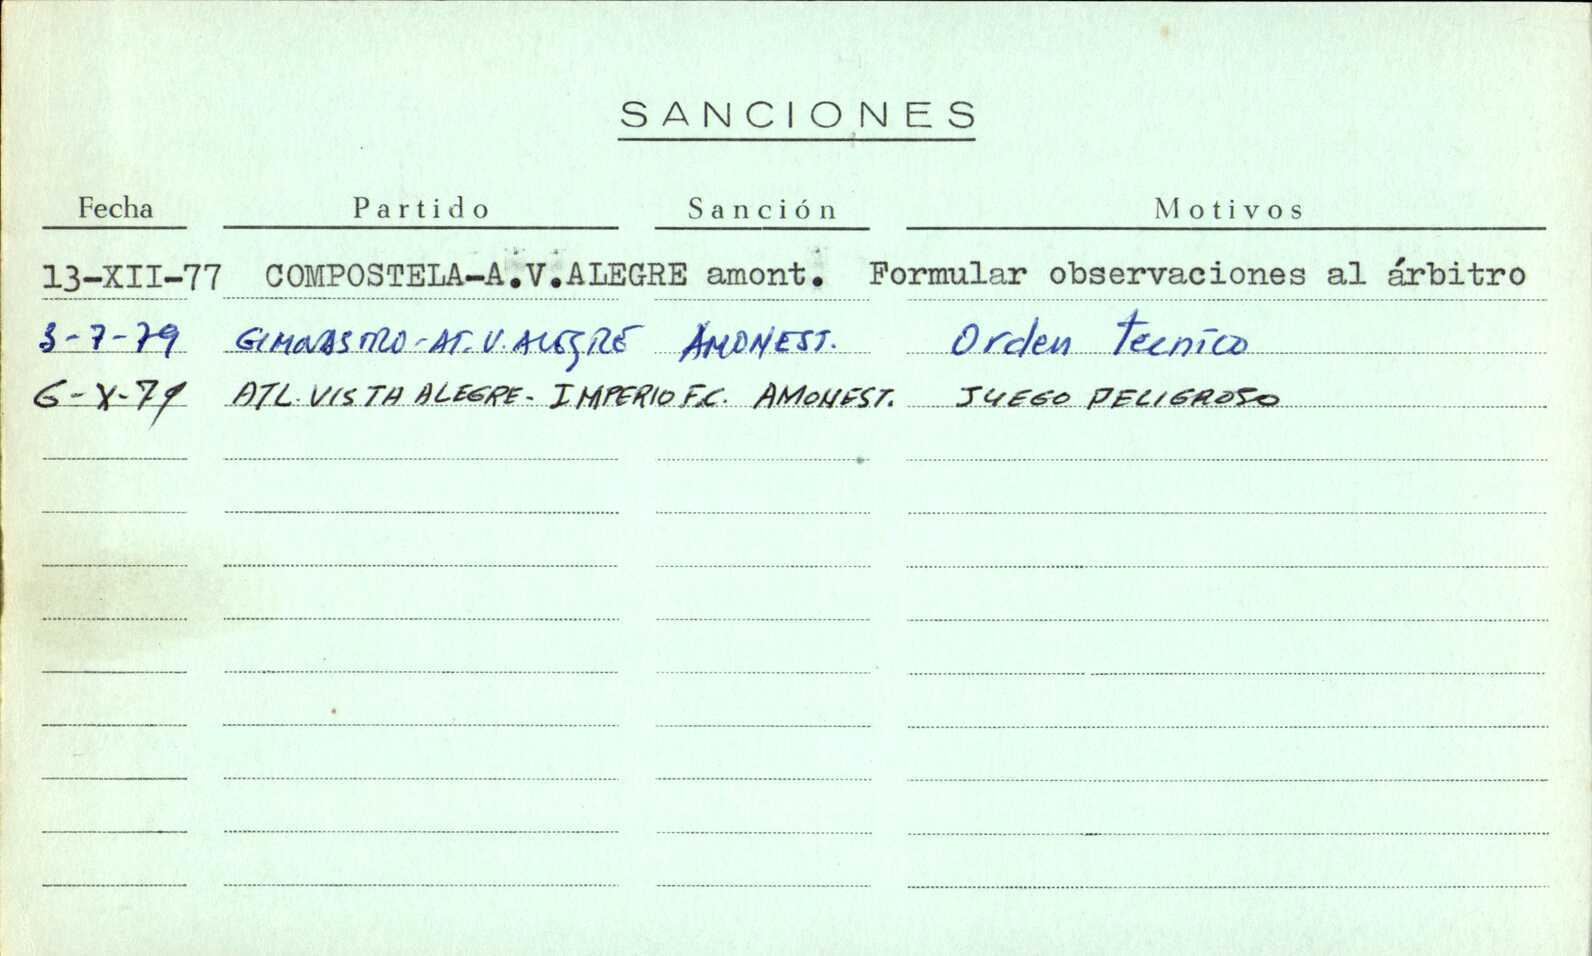 SANCIONES
Fecha Partido Sanción Motivos
13-XII-77 COMPOSTELA-A.V.ALEGRE amont. Formular observaciones al árbitro
3-7-79 GIMNASTRO-AT.V.ALEGRE AMONEST. Orden Tecnico
6-X-79 ATL. VISTA ALEGRE- IMPERIO F.C. AMONEST. JUEGO PELIGROSO